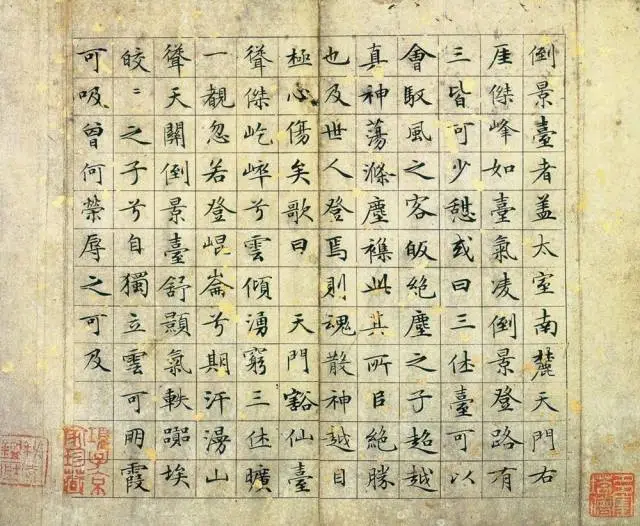 倒景臺者盖太室南麓天門右
厓傑峰如臺氣凌倒景登路有
三皆可少憇或曰三休臺可以
會馭風之客皈絶塵之子超越
真神蕩滌塵襟此其所㠯絶勝
也及世人登焉則魂散神越目
極心傷矣歌曰 天門豁仙臺
聳傑屹崒兮雲傾湧窮三休曠
一覩忽若登崐崙兮期汗漫山
聳天關倒景臺舒顥氣軼囂埃
皎〻之子兮自獨立雲可朋霞
可吸曾何榮辱之可及
項子京家珍藏